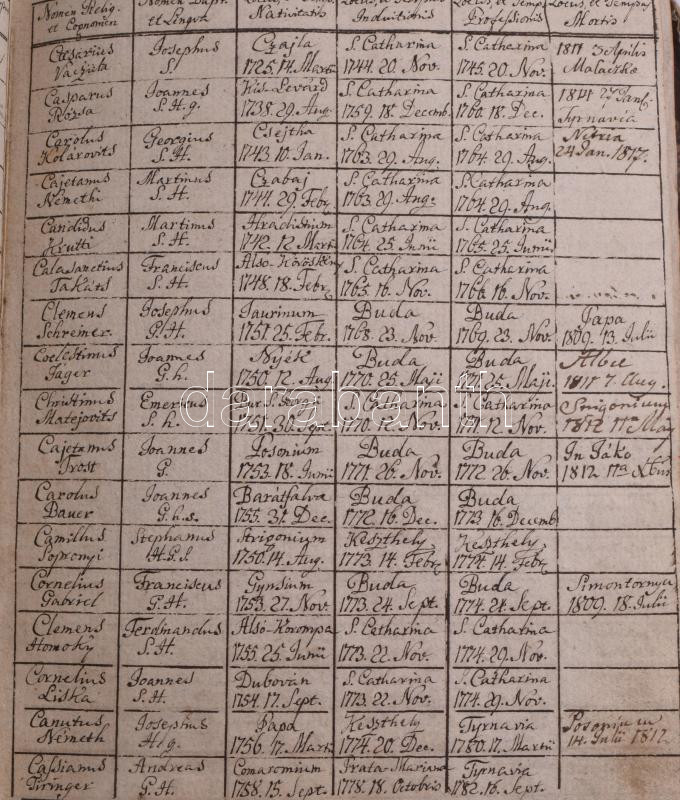 Nomen Relig. Nomen Bapt.
et Cognomen et Lingva Nativitatis Induitionis Professionis Mortis
Cæsarius Josephus Czajla S. Catharina S. Catharina 1811 3 Aprilis
S. 1725. 14. Martii 1744. 20. Nov. 1745. 20. Nov. Malaczkæ
Casparus Joannes Kis-Levárd S. Catharina S. Catharina
Rózsa S. H. g. 1738. 29. Aug. 1759. 18. Decemb. 1760. 18. Dec. Tyrnavia
Carolus Georgius Csejtha S. Catharina S. Catharina Nitria
Kolárovits S. H. 1743. 10. Jan. 1763. 29. Aug. 1764. 29. Aug. 24 Jan. 1817.
Cajetanus Martinus Czabaj S. Catharina S. Catharina
Némethi S. H. 1744. 29. Feb. 1763. 29. Aug. 1764. 29. Aug.
Candidus Martinus Hradistium S. Catharina S. Catharina
Krutti S. H. 1742. 12. Mart. 1764. 25. Junii 1765. 25. Junii
Calasanctius Franciscus S. Catharina S. Catharina
Takáts S. H. 1748. 18. Febr. 1765. 16. Nov. 1766. 16. Nov.
Clemens Josephus Jaurinum Buda Buda Papa
Schreiner G. H. 1751. 25. Febr. 1768. 23. Nov. 1769. 23. Nov. 1809. 13. Julii
Coelestinus Joannes Nyék Buda Buda Albæ
Jáger G. h. 1750. 12. Aug. 1770. 25. Maji 1771. 25. Maji. 1817 7. Aug.
Christinus Emericus S. Georgii S. Catharina S. Catharina Strigonium
Matejovits S. h. 1751. 30. Sept. 1770. 12. Nov. 1771. 12. Nov. 1812 17 May
databanth
Cajetanus Joannes Posonium Buda Buda In Jákó
Trost G. 1753. 18. Junii 1771. 26. Nov. 1772. 26. Nov. 1812 17a Xbris
Carolus Joannes Barátfalva Buda Buda
Bauer G. h. s. 1755. 31. Dec. 1772. 16. Dec. 1773. 16. Decemb.
Camillus Stephanus Strigonium Keszthely Keszthely
Sopronyi H. G. S. 1750. 14. Aug. 1773. 14. Febr. 1774. 14. Febr.
Cornelius Franciscus Gynsium Buda Buda Simontornya
Gabriel G. H. 1753. 27. Nov. 1773. 24. Sept. 1774. 24. Sept. 1809. 18. Julii
Clemens Ferdinandus Alsó-Korompa S. Catharina S. Catharina
Homoky S. H. 1755. 25. Junii 1773. 22. Nov. 1774. 29. Nov.
Cornelius Joannes Dubován S. Catharina S. Catharina
Liska S. H. 1754. 17. Sept. 1773. 22. Nov. 1774. 29. Nov.
Canutus Josephus Papa Keszthely Tyrnavia Posonium
Németh H. g. 1756. 17. Martii 1774. 20. Dec. 1780. 17. Martii 14. Julii 1812
Cassianus Andreas Comaromium Prata-Mariana Tyrnavia
Piringer G. H. 1758. 15. Sept. 1778. 18. Octobris 1782. 16. Sept.